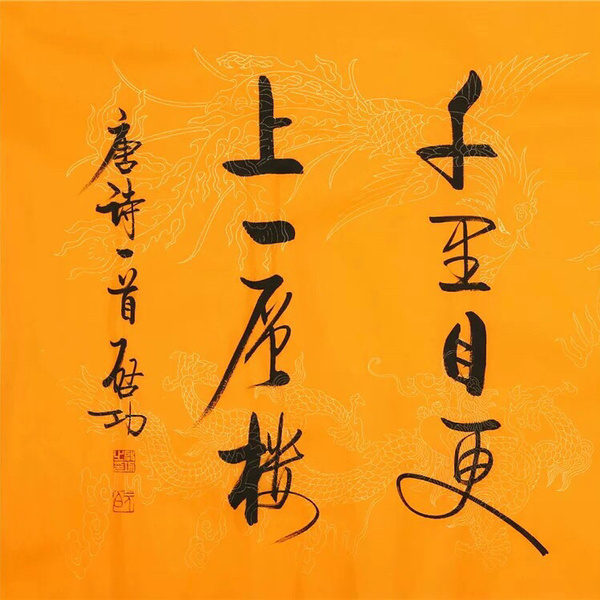 千里目更
上一层楼
唐诗一首启功